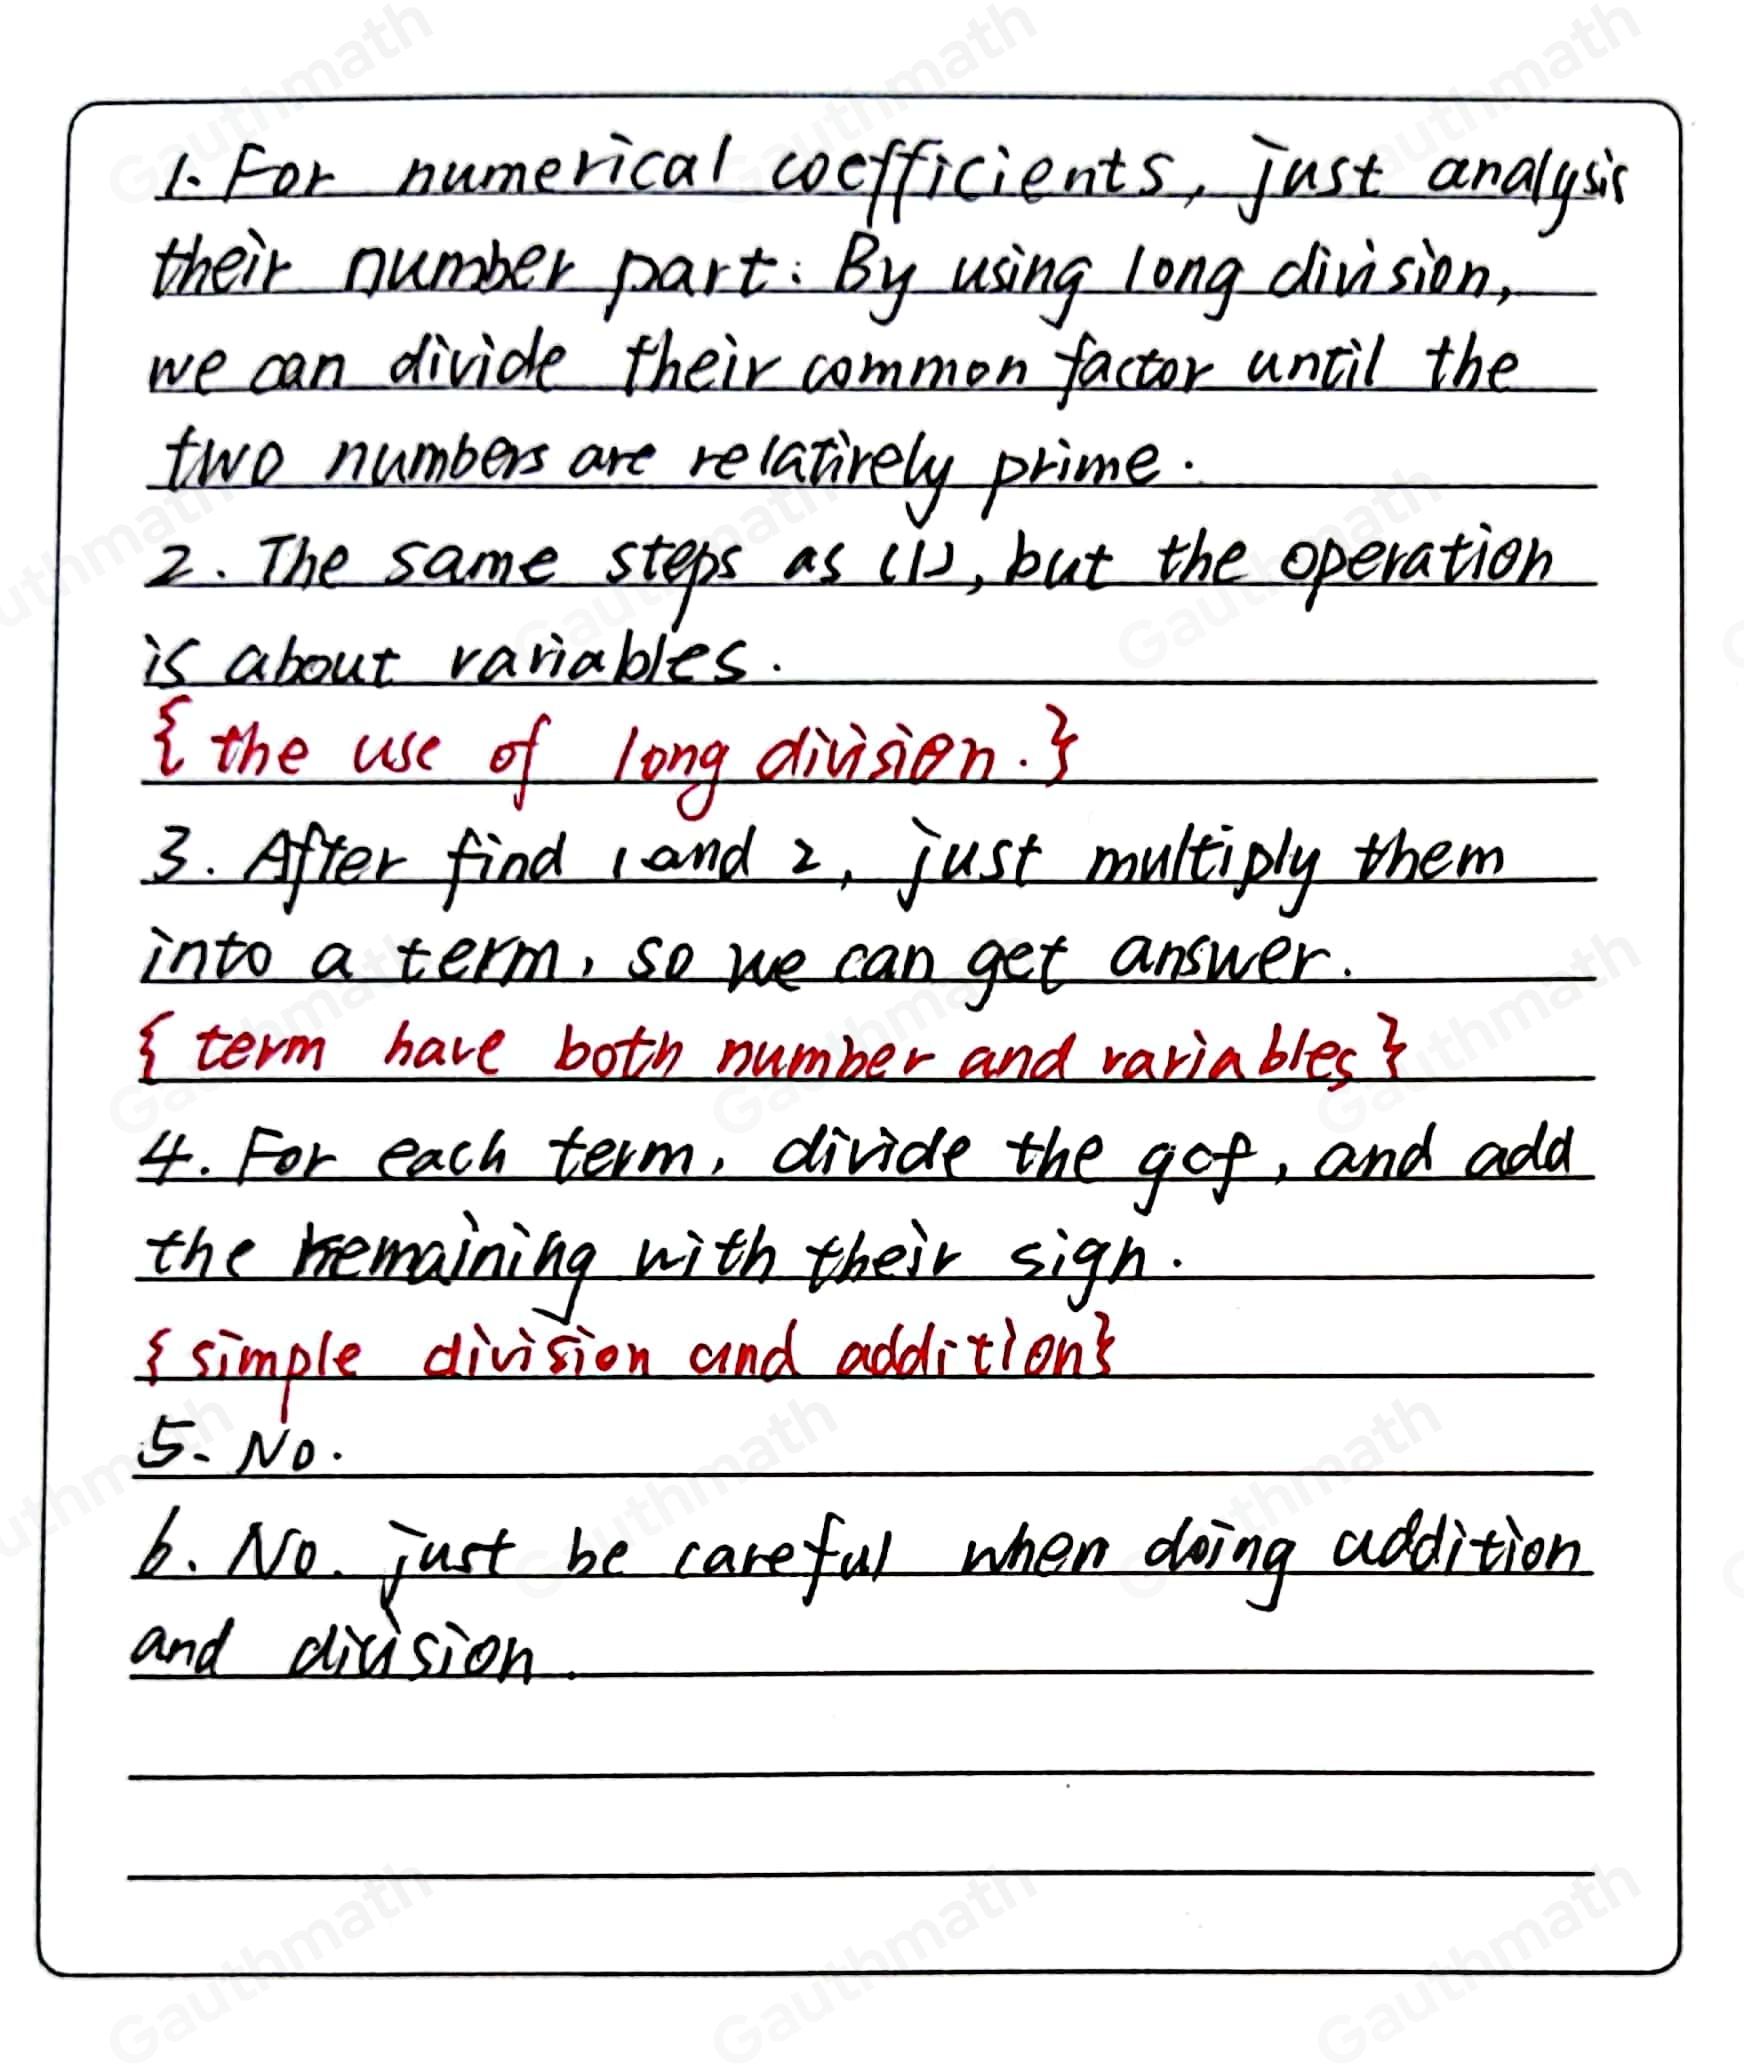 1. For numerical coefficients, just analysis
their number part. By using long division,
we can divide their common factor until the
two numbers are relatively prime.
2. The same steps as (1), but the operation
is about variables.
{ the use of long division. }
3. After find 1 and 2, just multiply them
into a term, so we can get answer.
{ term have both number and variables }
4. For each term, divide the gcf, and add
the remaining with their sign.
{ simple division and addition }
5. No.
6. No. just be careful when doing addition
and division.
Gauthmath